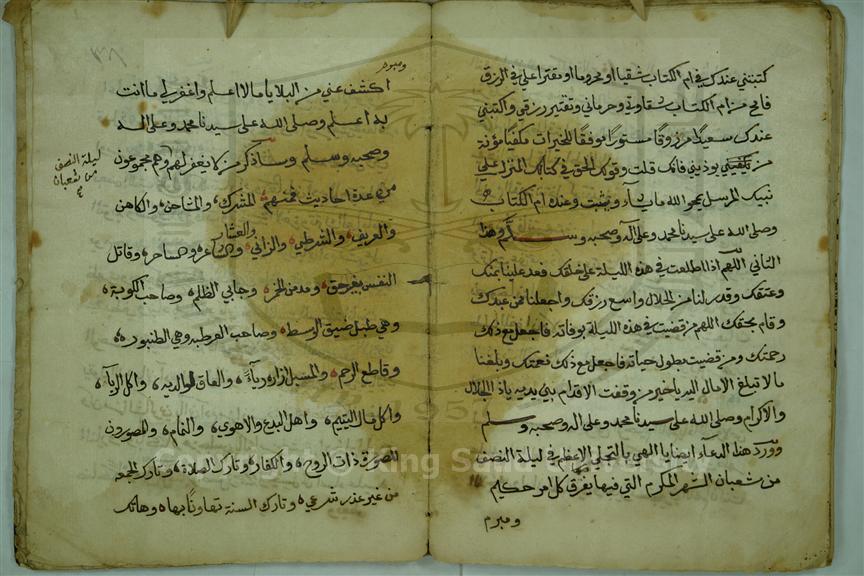 كتبتني عندك في ام الكتاب شقيا او محروما او مقترا علي في الرزق
فامح من ام الكتاب شقاوتي وحرماني وتقتير رزقي واكتبني
عندك سعيدا مرزوقا مستورا موفقا للخيرات مكفيا مؤنة
من يؤذيني فانك قلت وقولك الحق في كتابك المنزل علي
نبيك المرسل يمحو الله ما يشآء ويثبت وعنده ام الكتاب
وصلى الله على سيدنا محمد وعلى آله وصحبه وسلم وهذا
الثاني اللهم اذا اطلعت في هذه الليلة على خلقك فعد علينا بمنك
وعتقك وقدر لنا من الحلال واسع رزقك واجعلنا ممن عبدك
وقام بحقك اللهم من قضيت في هذه الليلة بوفاته فاجعل مع ذلك
رحمتك ومن قضيت بطول حياته فاجعل مع ذلك نعمتك وبلغنا
ما لا تبلغ الامال اليه يا خير من وقفت الاقدام بين يديه ياذ الجلال
والاكرام وصلى الله على سيدنا محمد وعلى اله وصحبه وسلم
وورد هذا الدعآء ايضا يا الهي بالتجلي الاعظم في ليلة النصف
من شعبان الشهر المكرم التي فيها يفرق كل امر حكيم
ومبرم
ومبرم
اكشف عني من البلايا ما لا اعلم واغفر لي ما انت
به اعلم وصلى الله على سيدنا محمد وعلى اله
وصحبه وسلم وساذكر من لا يغفر لهم وهم مجموعون
من عدة احاديث فمنهم المشرك والمشاحن والكاهن
والعريف والشرطي والزاني والعشار وساحر وقاتل
النفس بغير حق ومدمن الخمر وجابي الظلم وصاحب الكوبة
وهي طبل ضيق الوسط وصاحب العرطبه وهي الطنبور
وقاطع الرحم والمسبل ازاره ريآء والعاق لوالديه واكل الربآ
واكل مال اليتيم واهل البدع والاهويه والنمام والمصورون
للصورة ذات الروح والكفار وتارك الصلاة وتارك الجمعه
من غير عذر شرعي وتارك السنة تهاونا بها وهاتك
ليلة النصف
من شعبان